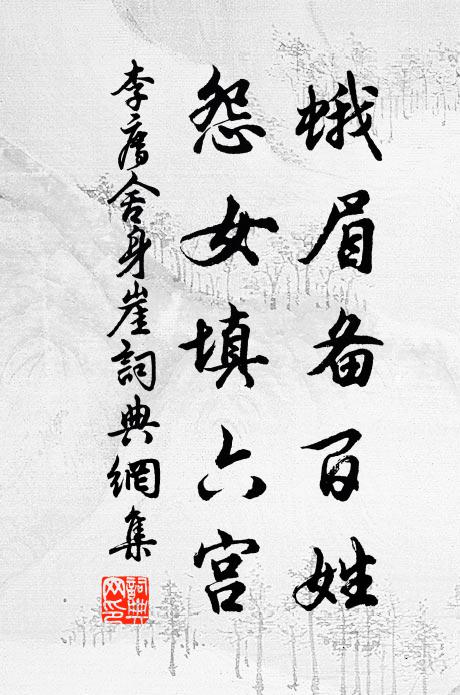 蛾眉备百姓
怨女填六宫
李舍身崖詞典網集
詞典网印